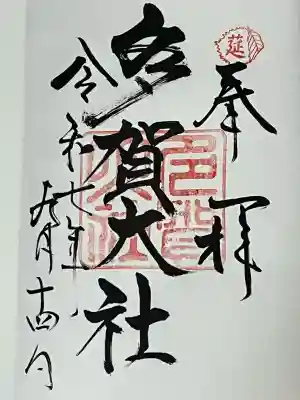 延
奉拝
多賀大社
令和七年
九月十四日